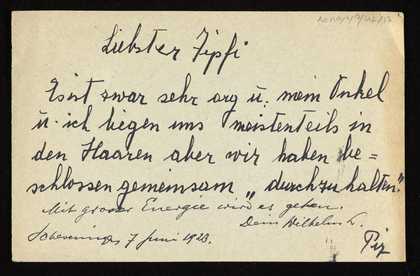 Liebster Zipfi
Es ist zwar sehr arg u. mein Onkel
u. ich liegen uns meistenteils in
den Haaren aber wir haben be=
schlossen gemeinsam „durchzuhalten."
Mit grosser Energie wird es gehen.
Dein Wilhelm
Scheveningen 7 Juni 1923.